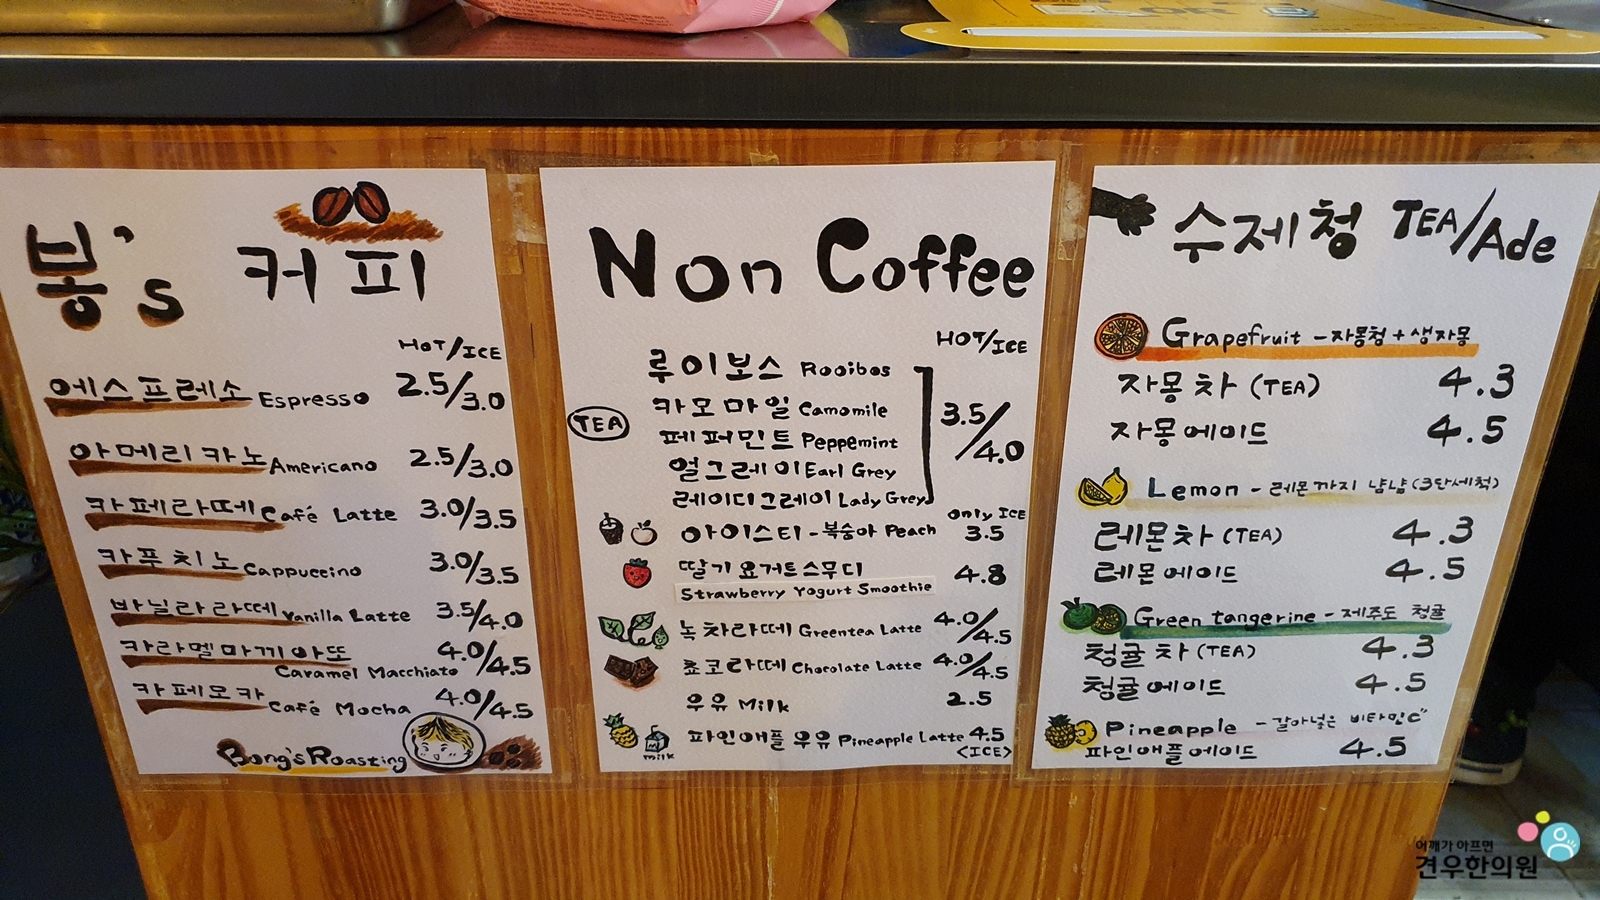 봉's 커피
HOT/ICE
에스프레소 Espresso 2.5/3.0
아메리카노 Americano 2.5/3.0
카페라떼 Café Latte 3.0/3.5
카푸치노 Cappuccino 3.0/3.5
바닐라라떼 Vanilla Latte 3.5/4.0
카라멜마끼아또 4.0/4.5
Caramel Macchiato
카페모카 Café Mocha 4.0/4.5
Bong's Roasting
Non Coffee
HOT/ICE
TEA
루이보스 Rooibos
카모마일 Camomile
페퍼민트 Peppemint
얼그레이 Earl Grey
레이디그레이 Lady Grey
3.5/4.0
only ICE
아이스티-복숭아 Peach 3.5
딸기요거트스무디 4.8
Strawberry Yogurt Smoothie
녹차라떼 Greentea Latte 4.0/4.5
쵸코라떼 Chocolate Latte 4.0/4.5
우유 Milk 2.5
파인애플우유 Pineapple Latte 4.5
milk
<ICE>
수제청 TEA/Ade
Grapefruit - 자몽청+생자몽
자몽차 (TEA) 4.3
자몽에이드 4.5
Lemon - 레몬까지 냠냠(3단세척)
레몬차 (TEA) 4.3
레몬에이드 4.5
Green tangerine - 제주도 청귤
청귤차 (TEA) 4.3
청귤에이드 4.5
Pineapple - 갈아넣은 비타민C"
파인애플에이드 4.5
어깨가 아프면
견우한의원